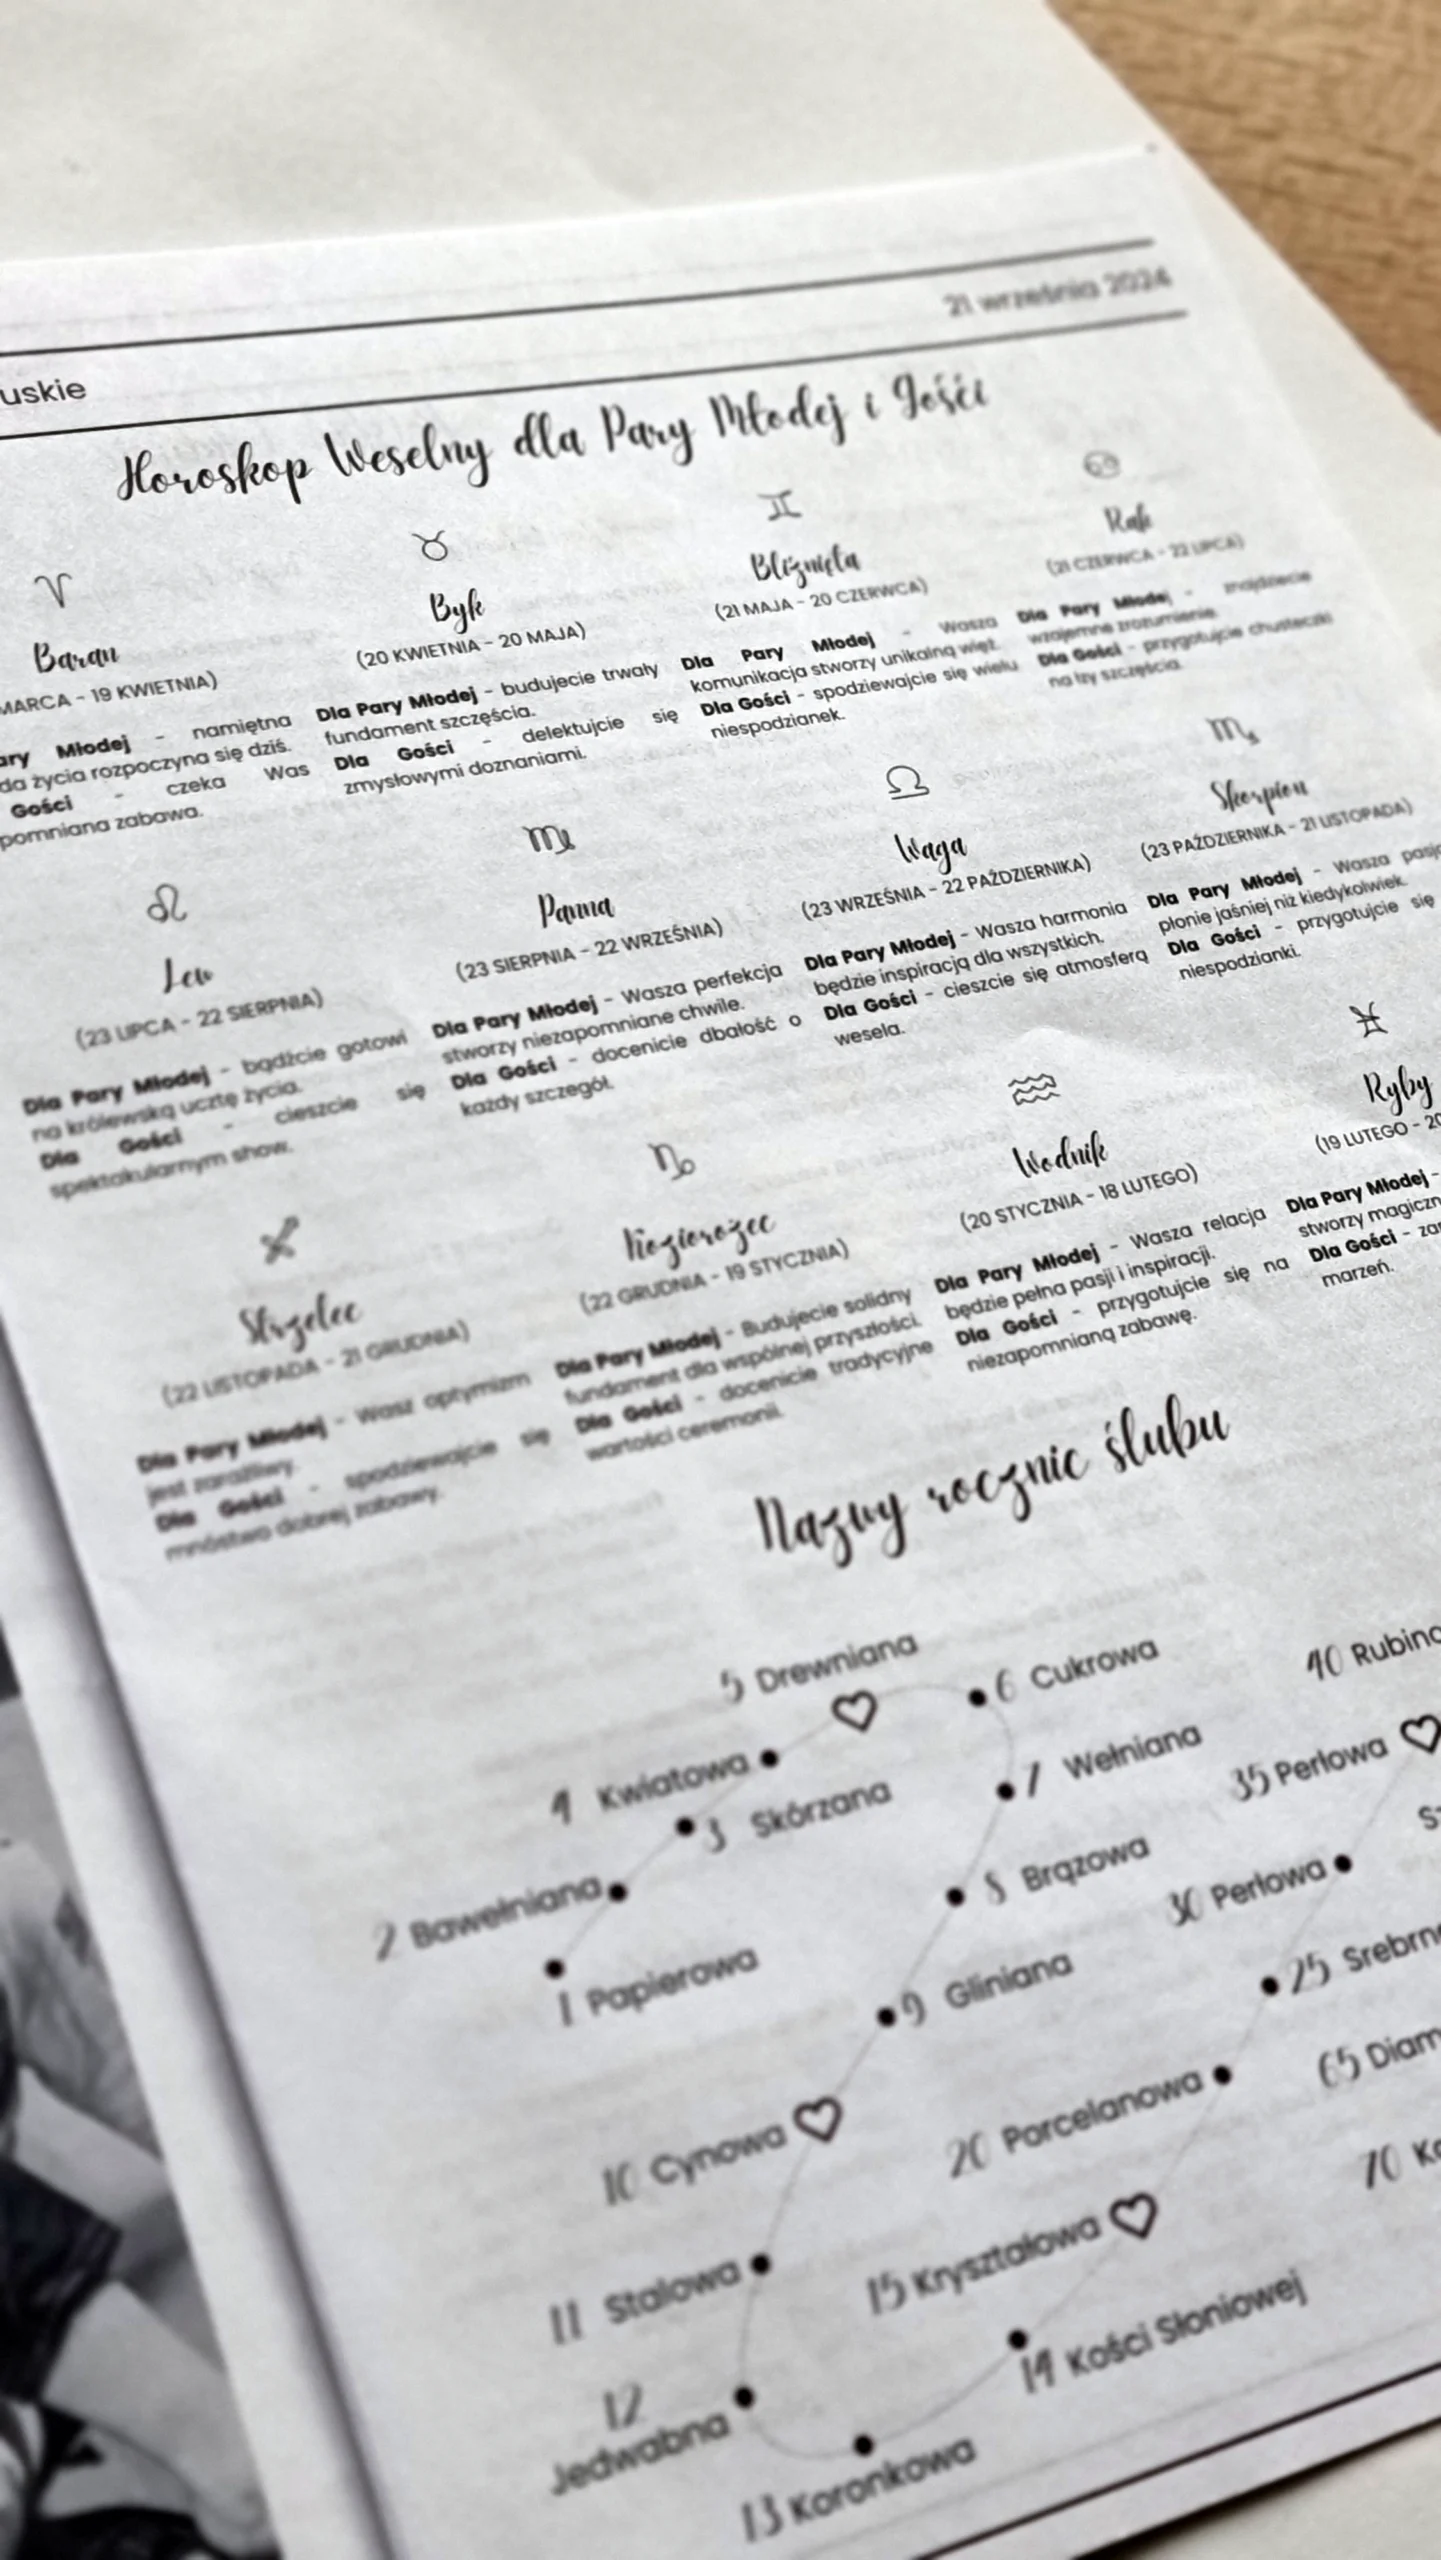 21 września 2024
uskie
Horoskop Weselny dla Pary Młodej i Gości
Baran
MARCA - 19 KWIETNIA)
ary Młodej - namiętna
da życia rozpoczyna się dziś.
Gości - czeka Was
pomniana zabawa.
Byk
(20 KWIETNIA - 20 MAJA)
Dla Pary Młodej - budujecie trwały
fundament szczęścia.
Dla Gości - delektujcie się
zmysłowymi doznaniami.
Bliźnięta
(21 MAJA - 20 CZERWCA)
Dla Pary Młodej - Wasza
komunikacja stworzy unikalną więź.
Dla Gości - spodziewajcie się wielu
niespodzianek.
Rak
(21 CZERWCA - 22 LIPCA)
Dla Pary Młodej - znajdziecie
wzajemne zrozumienie.
Dla Gości - przygotujcie chusteczki
na łzy szczęścia.
Lew
(23 LIPCA - 22 SIERPNIA)
Dla Pary Młodej - bądźcie gotowi
na królewską ucztę życia.
Dla Gości - cieszcie się
spektakularnym show.
Panna
(23 SIERPNIA - 22 WRZEŚNIA)
Dla Pary Młodej - Wasza perfekcja
stworzy niezapomniane chwile.
Dla Gości - docenicie dbałość o
każdy szczegół.
Waga
(23 WRZEŚNIA - 22 PAŹDZIERNIKA)
Dla Pary Młodej - Wasza harmonia
będzie inspiracją dla wszystkich.
Dla Gości - cieszcie się atmosferą
wesela.
Skorpion
(23 PAŹDZIERNIKA - 21 LISTOPADA)
Dla Pary Młodej - Wasza pasj
płonie jaśniej niż kiedykolwiek.
Dla Gości - przygotujcie się
niespodzianki.
Strzelec
(22 LISTOPADA - 21 GRUDNIA)
Dla Pary Młodej - Wasz optymizm
jest zaraźliwy.
Dla Gości - spodziewajcie się
mnóstwo dobrej zabawy.
Koziorożec
(22 GRUDNIA - 19 STYCZNIA)
Dla Pary Młodej - Budujecie solidny
fundament dla wspólnej przyszłości.
Dla Gości - docenicie tradycyjne
wartości ceremonii.
Wodnik
(20 STYCZNIA - 18 LUTEGO)
Dla Pary Młodej - Wasza relacja
będzie pełna pasji i inspiracji.
Dla Gości - przygotujcie się na
niezapomnianą zabawę.
Ryby
(19 LUTEGO - 20
Dla Pary Młodej -
stworzy magiczn
Dla Gości - za
marzeń.
Nazwy rocznic ślubu
5 Drewniana
6 Cukrowa
40 Rubino
4 Kwiatowa
7 Wełniana
35 Perłowa
3 Skórzana
2 Bawełniana
8 Brązowa
30 Perłowa
1 Papierowa
9 Gliniana
25 Srebrn
10 Cynowa
20 Porcelanowa
65 Diam
70 Ka
11 Stalowa
15 Kryształowa
14 Kości Słoniowej
12
Jedwabna
13 Koronkowa